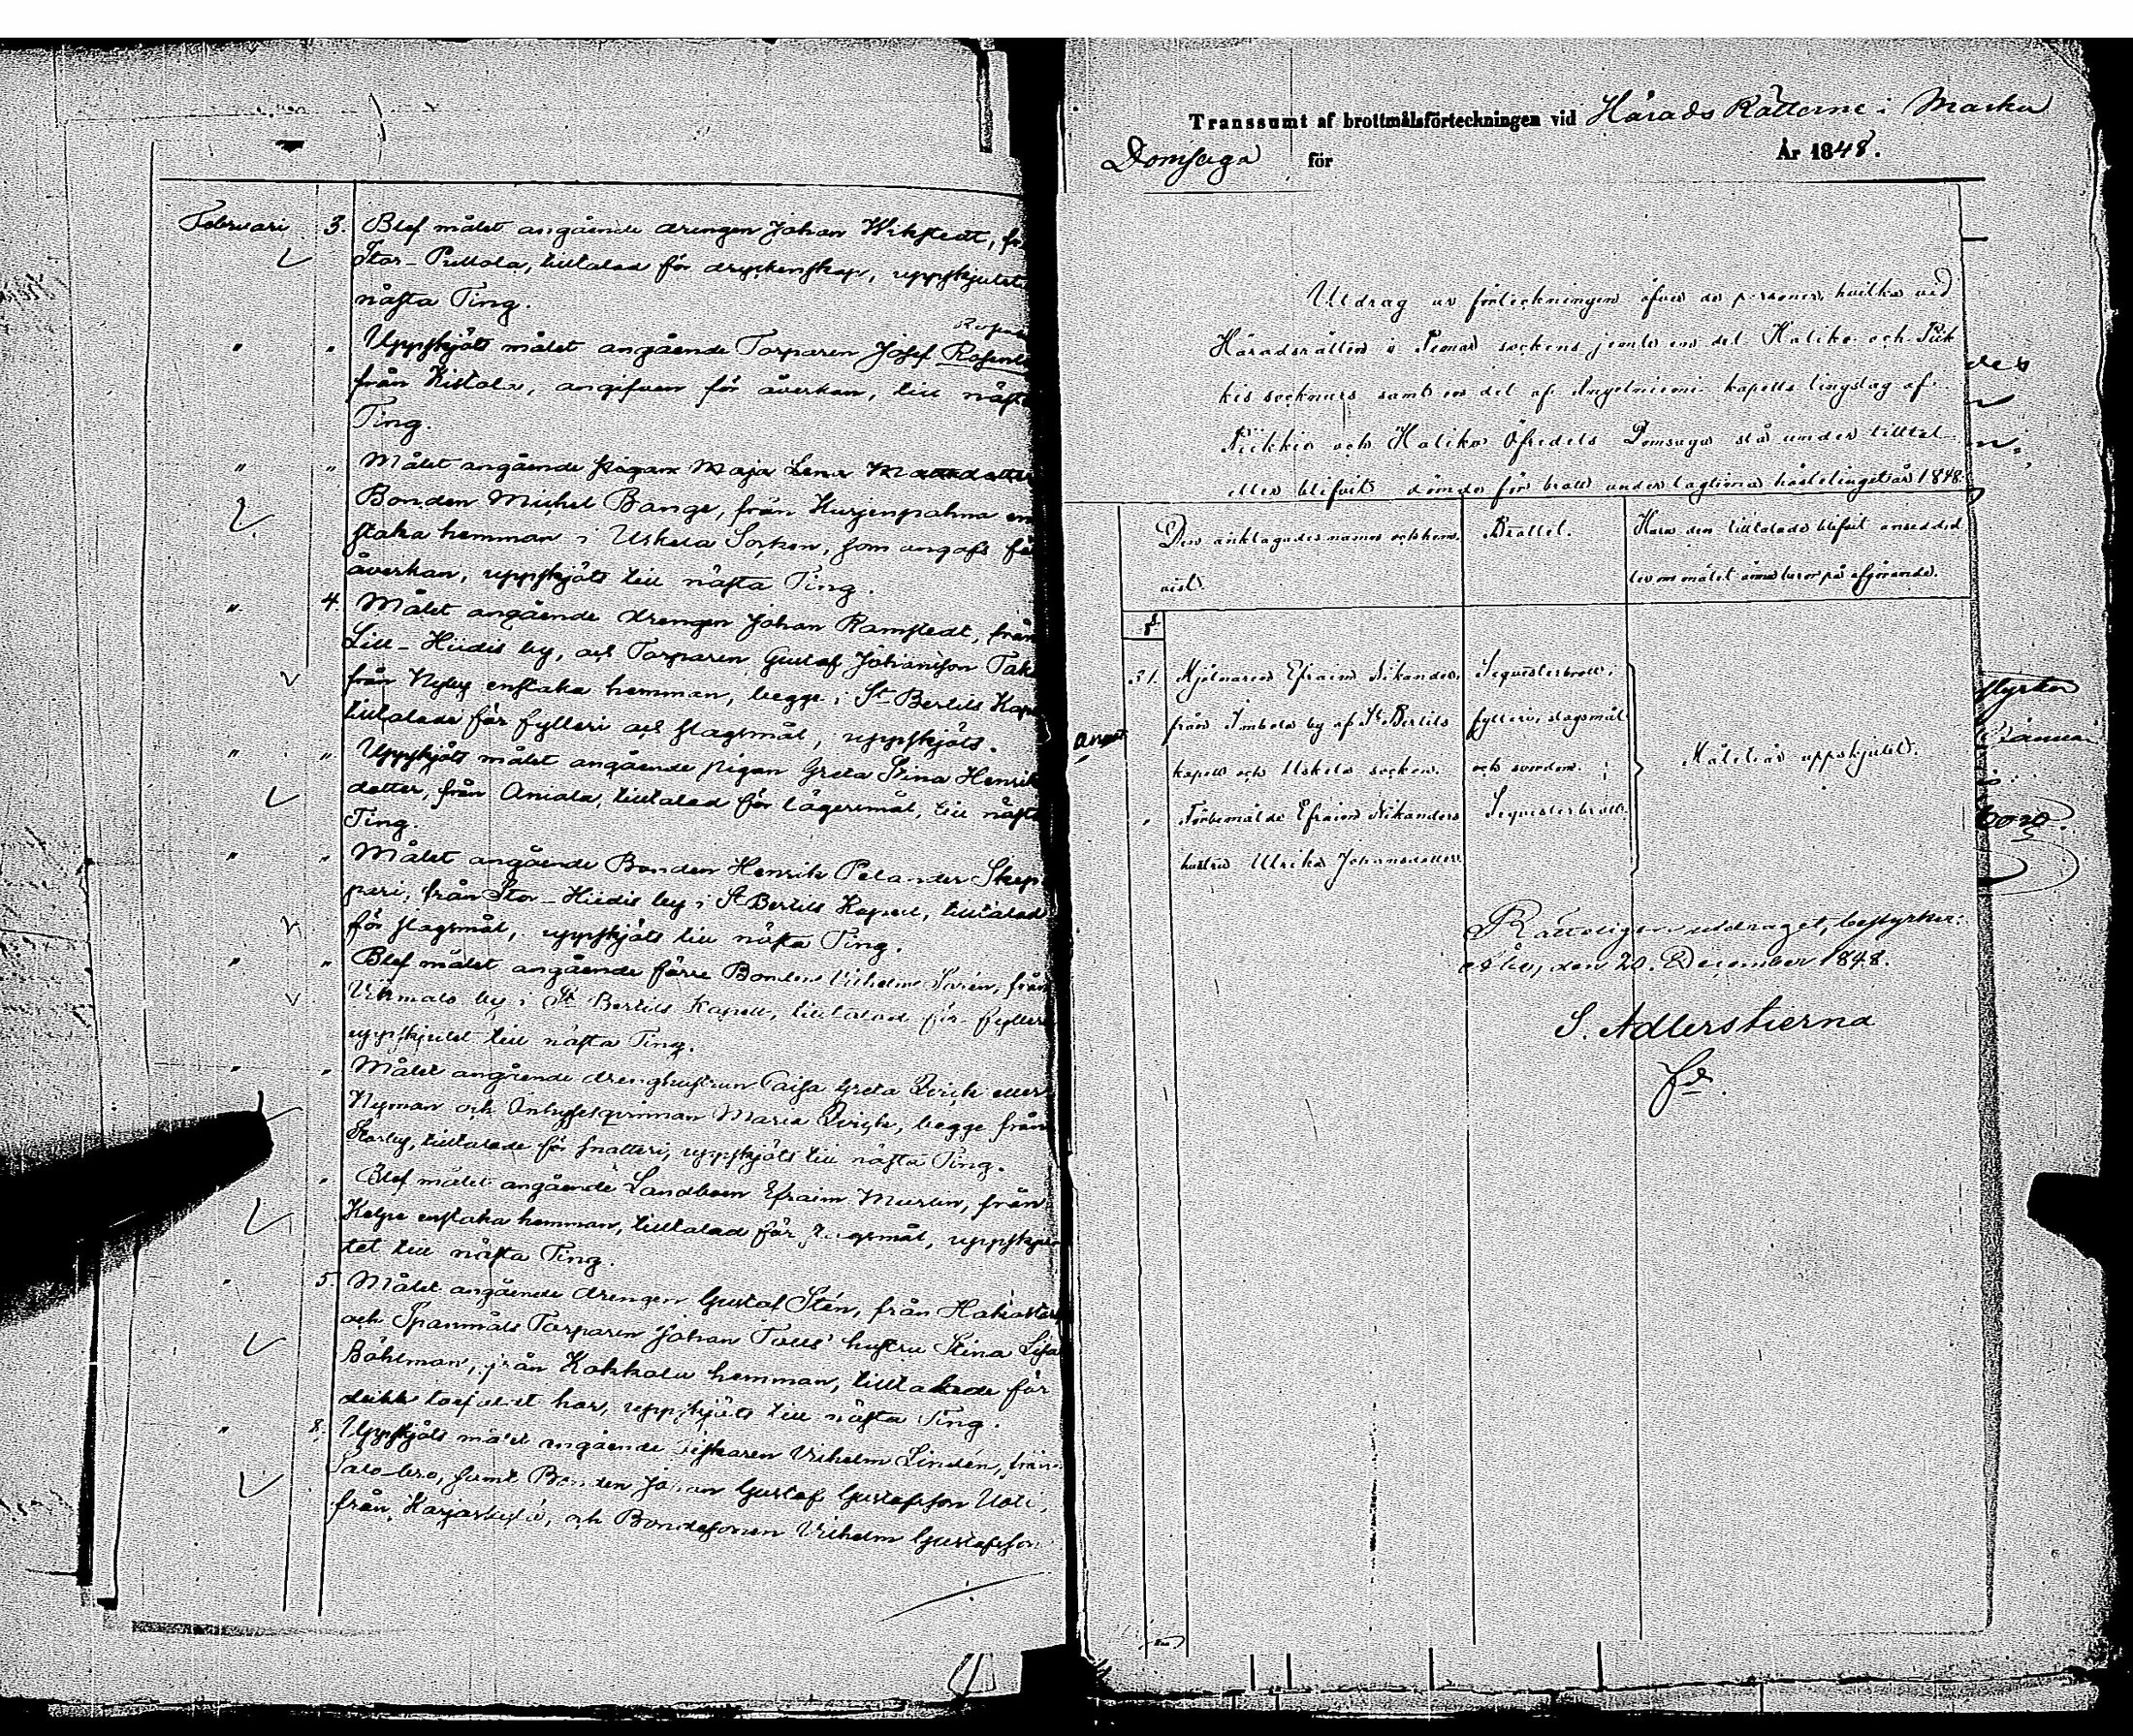 Februari 3. Blef målet angående drengen Johan Wikstedt, frå
Stor-Pullola, tilltalad för dryckenskap, uppskjutet
nästa Ting.
" " Uppskjöts målet angående Torparen Josef
från Kistola, angifven för åverkan, till nästa
Ting.
" " Målet angående pigan Maja Lena
Bonden Michel Bange, från Hurjenpahna en
staka hemman i Uskela Socken, som angafs för
åverkan, uppskjöts till nästa Ting.
" 4. Målet angående drengen Johan Ramstedt, från
Lill-Hiidis by, och Torparen Gustaf Johansson Tak
från Nyby enstaka hemman, begge i St Bertils Kape
tilltalade för fylleri och slagsmål, uppskjöts.
" " Uppskjöts målet angående pigan Greta Stina Henriks
dotter, från Aniala, tilltalad för lägersmål, till nästa
Ting.
" " Målet angående Bonden Henrik Pelander Skep
pari, från Stor-Hiidis by i St Bertils Kapell, tilltalad
för slagsmål, uppskjöts till nästa Ting.
" " Blef målet angående förre Bonden Vilhelm från
by i St Bertils Kapell, tilltalad för fylleri
uppskjutet till nästa Ting.
" " Målet angående drenghustrun Caisa Greta Qvick eller
Nyman och Inhysesqvinnan Maria Qvick, begge från
Storby, tilltalade för snatteri, uppskjöts till nästa Ting.
" Blef målet angående Landboen Efraim Murlin, från
Kelpe enstaka hemman, tilltalad för uppskju
tet till nästa Ting.
" 5. Målet angående drengen Gustaf Stén, från
och Spanmåls Torparen Johan hustru Stina Lisa
Böhlman, från Kokkola hemman, tilltalade för
uppskjöts till nästa Ting.
" 8. Uppskjöts målet angående Vilhelm Lindén, från
Salo bro, samt Bonden Johan Gustaf Gustafsson Uoti,
från och Bondesonen Vilhelm Gustafsson
Transsumt af brottmålsförteckningen vid Härads Rätterne i Masku
Domsaga för År 1848.
Utdrag ur förteckningen öfver de personer, hvilka vid
Häradsrätten i Pemar sockens jemte en del Haliko och Pik
kis socknars samt en del af Angelniemi kapells tingslag af
Pickkis och Haliko Öfredels Domsaga stå under tilltal
eller blifvit dömde för brott under lagtima hösttinget år 1848.
Den anklagades namn och hem-
vist.
Brottet.
Huru den tilltalade blifvit ansedd el
ler om målet ännu beror på afgörande.
31. Mjölnaren Efraim Nikander,
från Inbola by af St Bertils
kapell och Uskela socken.
Seqvesterbrott,
fylleri, slagsmål
och svordom.
" Förbemälde Efraim Nikanders
hustru Ulrika Johansdotter.
Seqvesterbrott.
Målet är uppskjutet.
utdraget, bestyrker;
Åbo, den 20. December 1848.
S. Adlerstierna